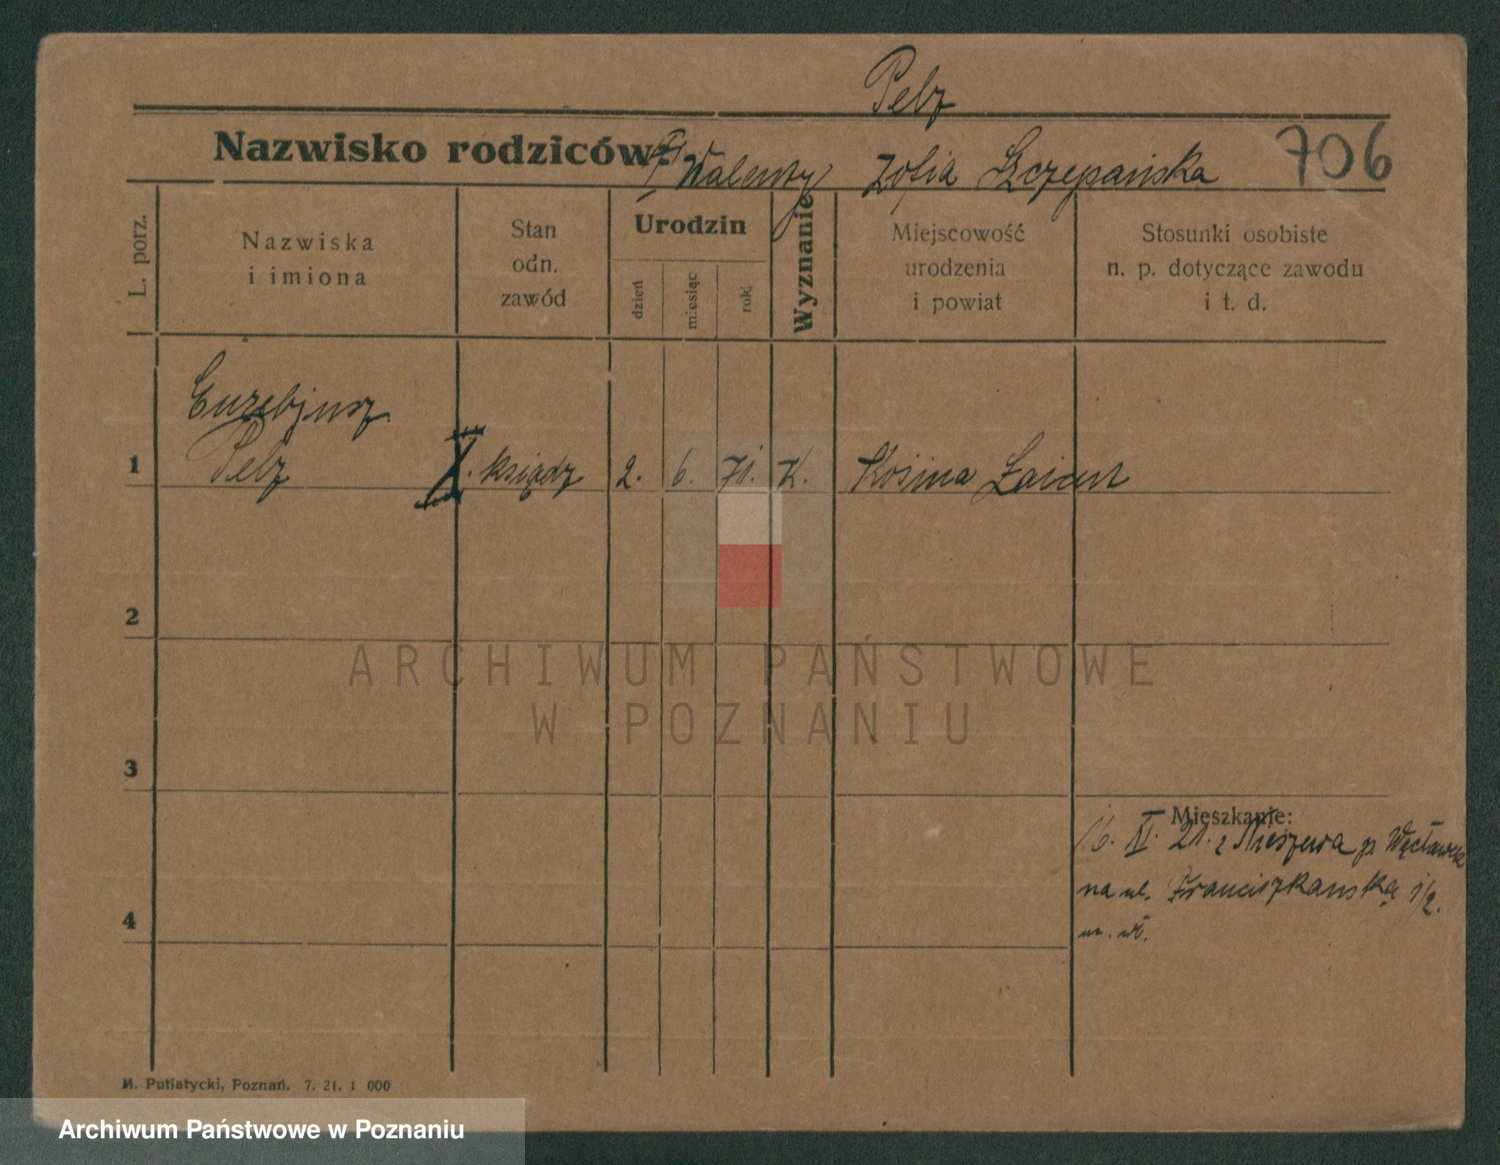 Pelz
Nazwisko rodziców: Walenty Zofia Szczepańska 706
L. porz.
Nazwiska
i imiona
Stan
odn.
zawód
Urodzin
dzień
miesiąc
rok
Wyznanie
Miejscowość
urodzenia
i powiat
Stosunki osobiste
n. p. dotyczące zawodu
i t. d.
Euzebjusz
1 Pelz X. ksiądz 2. 6. 71. K. Kosina Łańcut
2
ARCHIWUM PAŃSTWOWE
W POZNANIU
3
Mieszkanie:
16. XI. 21. z Nieszawa p. Włocławek
na ul. Franciszkańską 1/2.
4
M. Putiatycki, Poznań. 7. 21. 1 000
Archiwum Państwowe w Poznaniu